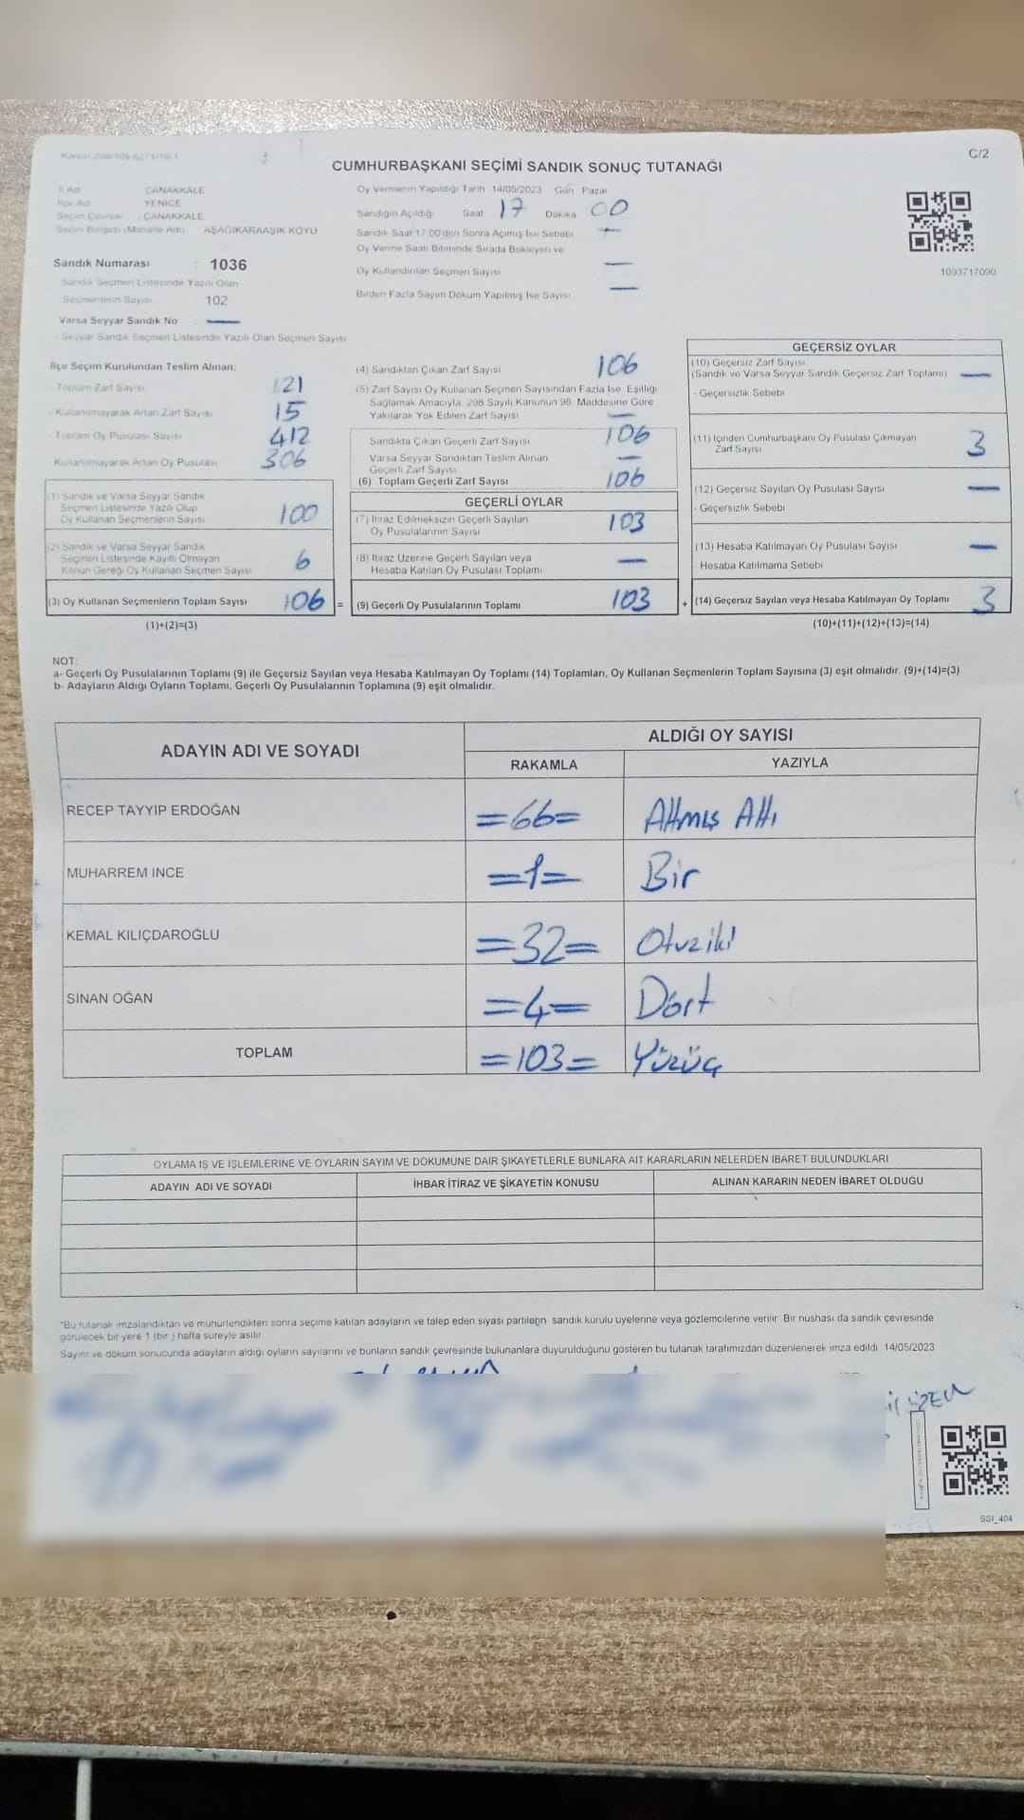 C/2
CUMHURBAŞKANI SEÇİMİ SANDIK SONUÇ TUTANAĞI
İl Adı ÇANAKKALE
İlçe Adı YENİCE
Seçim Çevresi ÇANAKKALE
Seçim Bölgesi (Mahalle Adı) AŞAĞIKARAAŞIK KÖYÜ
Sandık Numarası : 1036
Sandık Seçmen Listesinde Yazılı Olan
Seçmenlerin Sayısı 102
Varsa Seyyar Sandık No —
- Seyyar Sandık Seçmen Listesinde Yazılı Olan Seçmen Sayısı
Oy Vermenin Yapıldığı Tarih 14/05/2023 Gün Pazar
Sandığın Açıldığı Saat 17 Dakika 00
Sandık Saat 17:00'den Sonra Açılmış İse Sebebi —
Oy Verme Saati Bitiminde Sırada Bekleyen ve
Oy Kullandırılan Seçmen Sayısı —
Birden Fazla Sayım Döküm Yapılmış İse Sayısı —
1093717090
İlçe Seçim Kurulundan Teslim Alınan;
- Toplam Zarf Sayısı 121
- Kullanılmayarak Artan Zarf Sayısı 15
- Toplam Oy Pusulası Sayısı 412
Kullanılmayarak Artan Oy Pusulası 306
(1) Sandık ve Varsa Seyyar Sandık
Seçmen Listesinde Yazılı Olup
Oy Kullanan Seçmenlerin Sayısı 100
(2) Sandık ve Varsa Seyyar Sandık
Seçmen Listesinde Kayıtlı Olmayan
Kanun Gereği Oy Kullanan Seçmen Sayısı 6
(3) Oy Kullanan Seçmenlerin Toplam Sayısı 106 =
(1)+(2)=(3)
(4) Sandıktan Çıkan Zarf Sayısı 106
(5) Zarf Sayısı Oy Kullanan Seçmen Sayısından Fazla İse, Eşitliği
Sağlamak Amacıyla, 298 Sayılı Kanunun 98. Maddesine Göre
Yakılarak Yok Edilen Zarf Sayısı —
Sandıkta Çıkan Geçerli Zarf Sayısı 106
Varsa Seyyar Sandıktan Teslim Alınan
Geçerli Zarf Sayısı —
(6) Toplam Geçerli Zarf Sayısı 106
GEÇERLİ OYLAR
(7) İtiraz Edilmeksizin Geçerli Sayılan
Oy Pusulalarının Sayısı 103
(8) İtiraz Üzerine Geçerli Sayılan veya
Hesaba Katılan Oy Pusulası Toplamı —
(9) Geçerli Oy Pusulalarının Toplamı 103 +
GEÇERSİZ OYLAR
(10) Geçersiz Zarf Sayısı
(Sandık ve Varsa Seyyar Sandık Geçersiz Zarf Toplamı) —
- Geçersizlik Sebebi
(11) İçinden Cumhurbaşkanı Oy Pusulası Çıkmayan
Zarf Sayısı 3
(12) Geçersiz Sayılan Oy Pusulası Sayısı —
- Geçersizlik Sebebi
(13) Hesaba Katılmayan Oy Pusulası Sayısı —
Hesaba Katılmama Sebebi
(14) Geçersiz Sayılan veya Hesaba Katılmayan Oy Toplamı 3
(10)+(11)+(12)+(13)=(14)
NOT:
a- Geçerli Oy Pusulalarının Toplamı (9) ile Geçersiz Sayılan veya Hesaba Katılmayan Oy Toplamı (14) Toplamları, Oy Kullanan Seçmenlerin Toplam Sayısına (3) eşit olmalıdır. (9)+(14)=(3)
b- Adayların Aldığı Oyların Toplamı, Geçerli Oy Pusulalarının Toplamına (9) eşit olmalıdır.
ADAYIN ADI VE SOYADI ALDIĞI OY SAYISI
RAKAMLA YAZIYLA
RECEP TAYYİP ERDOĞAN =66= Altmış Altı
MUHARREM İNCE =1= Bir
KEMAL KILIÇDAROĞLU =32= Otuziki
SİNAN OĞAN =4= Dört
TOPLAM =103= Yüzüç
OYLAMA İŞ VE İŞLEMLERİNE VE OYLARIN SAYIM VE DÖKÜMÜNE DAİR ŞİKAYETLERLE BUNLARA AİT KARARLARIN NELERDEN İBARET BULUNDUKLARI
ADAYIN ADI VE SOYADI İHBAR İTİRAZ VE ŞİKAYETİN KONUSU ALINAN KARARIN NEDEN İBARET OLDUĞU
*Bu tutanak imzalandıktan ve mühürlendikten sonra seçime katılan adayların ve talep eden siyasi partilerin sandık kurulu üyelerine veya gözlemcilerine verilir. Bir nüshası da sandık çevresinde
görülecek bir yere 1 (bir ) hafta süreyle asılır.
Sayım ve döküm sonucunda adayların aldığı oyların sayılarını ve bunların sandık çevresinde bulunanlara duyurulduğunu gösteren bu tutanak tarafımızdan düzenlenerek imza edildi. 14/05/2023
SSI_404